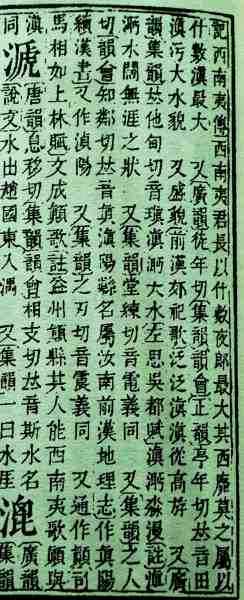 記西南夷傳西南夷君長以什數夜郎最大其西靡莫之屬以
什數滇最大 又廣韻徒年切集韻韻會正韻亭年切𠀤音田
滇污大水貌 又盛貌前漢郊祀歌泛泛滇滇從高斿 又廣
韻集韻𠀤他甸切音瑱滇㴐大水左思吳都賦滇㴐淼漫註滇
㴐水闊無涯之狀 又集韻堂練切音電義同 又集韻之人
切韻會知鄰切𠀤音眞滇陽縣名屬汝南前漢地理志作眞陽
續漢書又作滇陽 又集韻之刃切音震義同 又通作顚司
馬相如上林賦文成顚歌註益州顚縣其人能西南夷歌顚與
滇
同
㴲
唐韻息移切集韻韻會相支切𠀤音斯水名
說文水出趙國東入湡 又集韻一曰水涯
廣韻
集韻